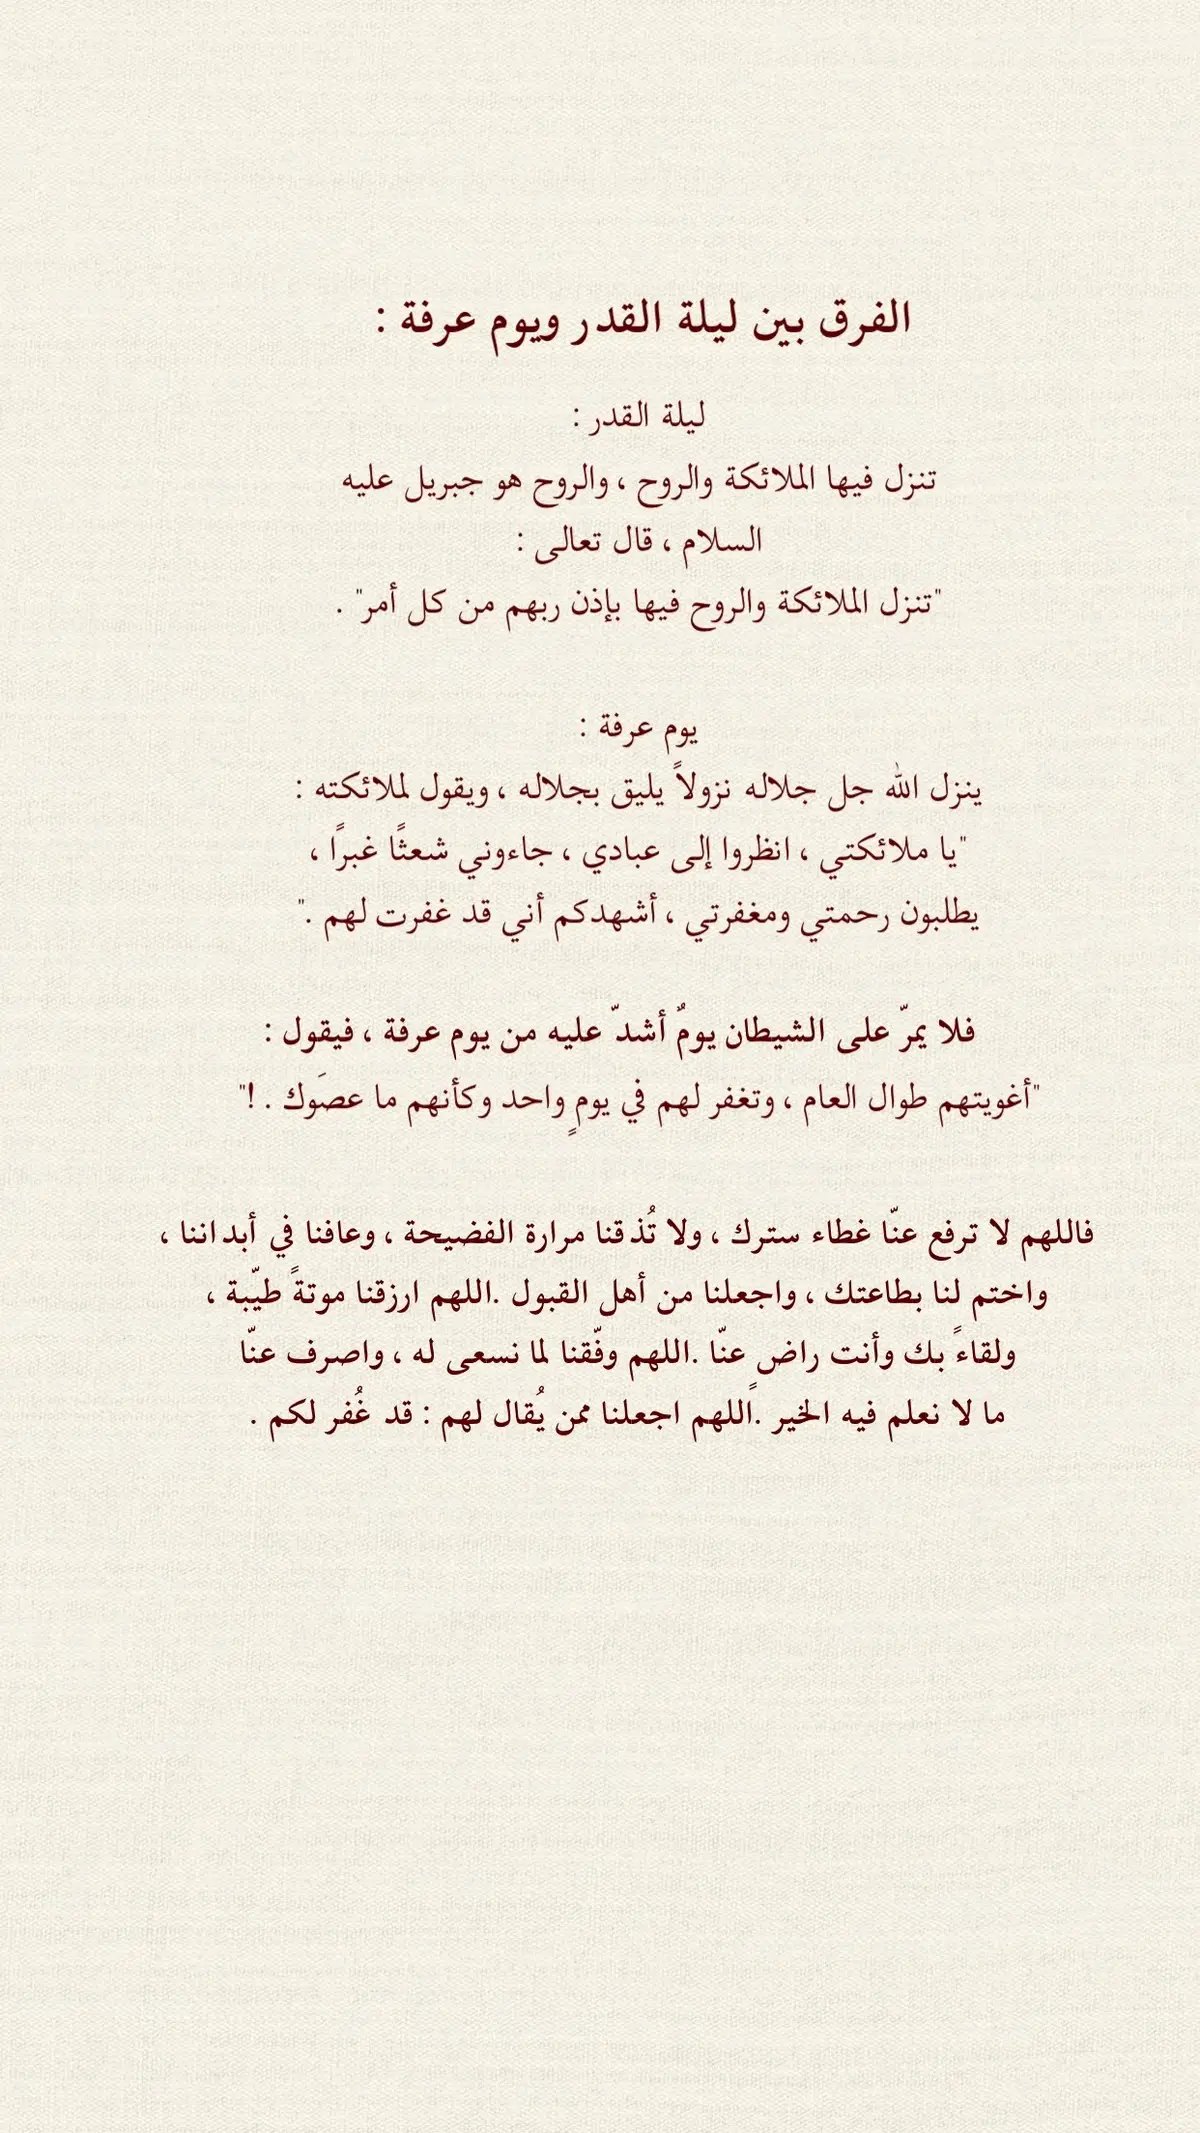 الفرق بين ليلة القدر ويوم عرفة :
ليلة القدر :
تنزل فيها الملائكة والروح ، والروح هو جبريل عليه
السلام ، قال تعالى :
"تنزل الملائكة والروح فيها بإذن ربهم من كل أمر" .
يوم عرفة :
ينزل الله جل جلاله نزولاً يليق بجلاله ، ويقول لملائكته :
"يا ملائكتي ، انظروا إلى عبادي ، جاءوني شعثًا غبرًا ،
يطلبون رحمتي ومغفرتي ، أشهدكم أني قد غفرت لهم ."
فلا يمرّ على الشيطان يومٌ أشدّ عليه من يوم عرفة ، فيقول :
"أغويتهم طوال العام ، وتغفر لهم في يومٍ واحد وكأنهم ما عصَوك . !"
فاللهم لا ترفع عنّا غطاء سترك ، ولا تُذقنا مرارة الفضيحة ، وعافنا في أبداننا ،
واختم لنا بطاعتك ، واجعلنا من أهل القبول .اللهم ارزقنا موتةً طيّبة ،
ولقاءً بك وأنت راضٍ عنّا .اللهم وفّقنا لما نسعى له ، واصرف عنّا
ما لا نعلم فيه الخير .اللهم اجعلنا ممن يُقال لهم : قد غُفر لكم .